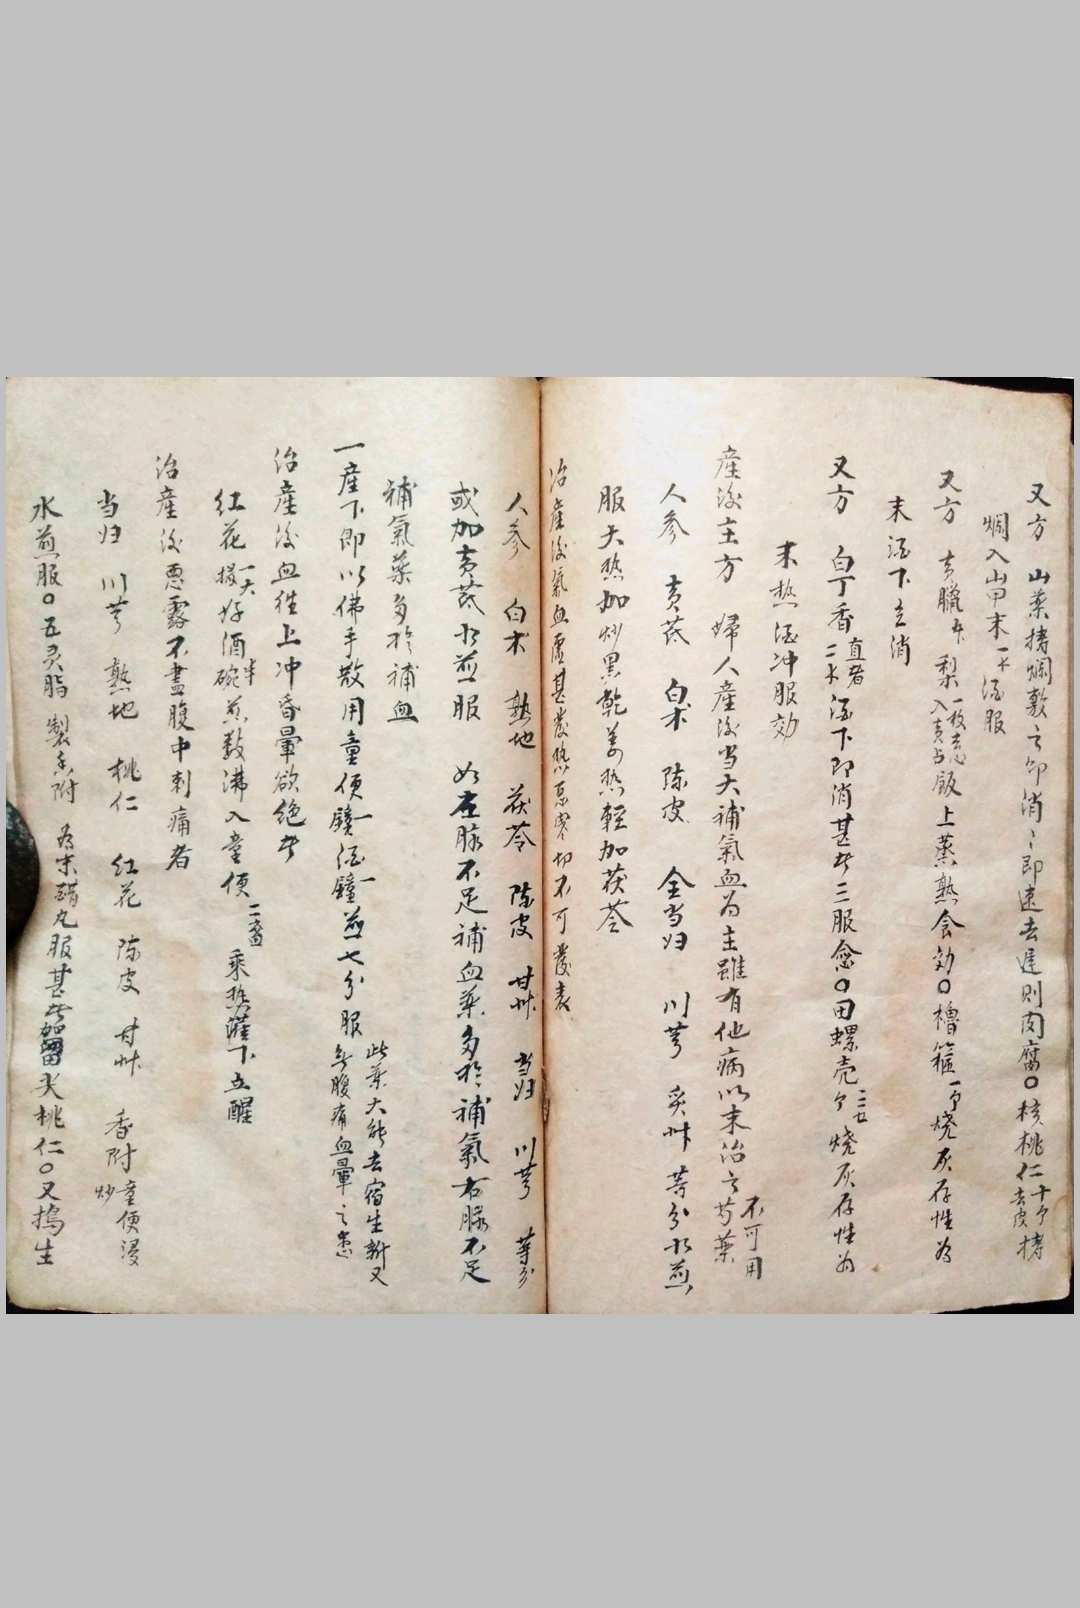 又方 山薬搗爛敷之即消〻即速去遲則肉腐〇核桃仁十个去皮搗
爛入山甲末一不酒服
又方 黄臘 梨一枚去心入黄占飯上蒸熟食効〇櫓箍一个燒灰存性為
末酒下立消
又方 白丁香直者二不酒下即消甚者三服愈〇田螺壳二三七个燒灰存性為
末熱酒冲服効
産後主方 婦人産後当大補氣血为主雖有他病以末治之芍薬不可用
人参 黄芪 白朮 陈皮 全当归 川芎 炙艸 等分水煎
服大热加炒黑乾姜热輕加茯苓
治産後氣血虚甚發热惡寒切不可發表
人参 白术 熟地 茯苓 陈皮 甘艸 当归 川芎 等分
或加黄芪水煎服 如左脉不足補血薬多於補氣右脉不足
補氣薬多於補血
一産下即以佛手散用童便一鐘酒一鐘煎七分服此薬大能去宿生新又無腹痛血暈之患
治産後血往上冲昏暈欲絶者
紅花一大撮好酒半碗煎数沸入童便二盞乘热灌下立醒
治産後惡露不盡腹中刺痛者
当归 川芎 熟地 桃仁 红花 陈皮 甘艸 香附童便浸炒
水煎服〇五灵脂 製香附 為末醋丸服甚者加留尖桃仁〇又搗生